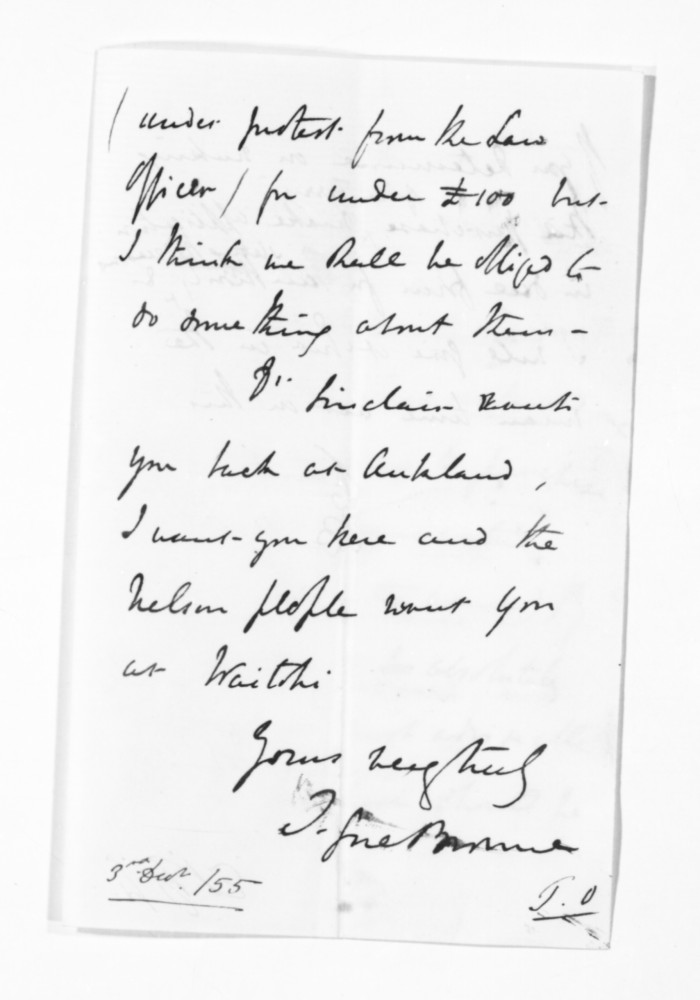 (under protest from the Law
Officer) for under £100 but
I think we shall be obliged to
do something about them –
Dr. Sinclair wants
you back at Aukland,
I want you here and the
Nelson people want you
at Waitohi
Yours very truly
T. Gore Browne
3rd /55
T. O